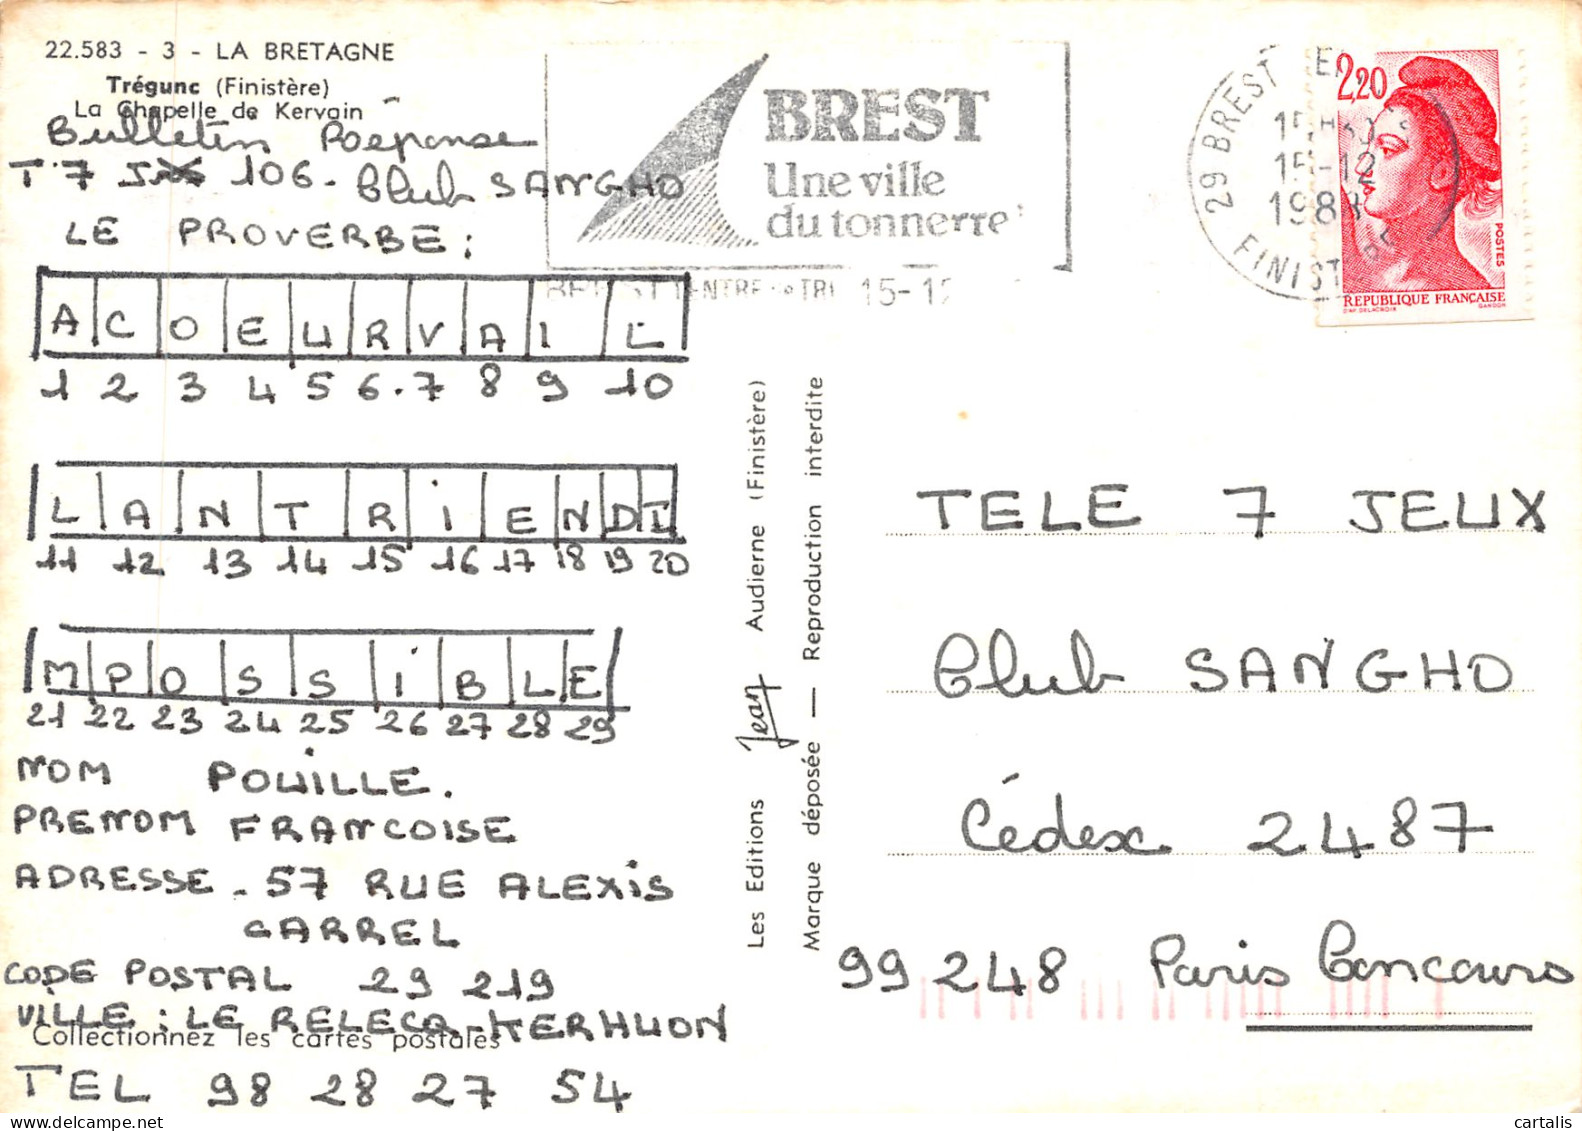 22.583 - 3 - LA BRETAGNE
Trégunc (Finistère)
La Chapelle de Kervain
Bulletin Réponse
T 7 J 106 - Club SANGHO
LE PROVERBE :
A C O E U R V A I L
1 2 3 4 5 6 . 7 8 9 10
L A N T R I E N D I
11 12 13 14 15 16 17 18 19 20
M P O S S I B L E
21 22 23 24 25 26 27 28 29
NOM POUILLE.
PRENOM FRANCOISE
ADRESSE - 57 RUE ALEXIS
CARREL
CODE POSTAL 29 219
VILLE : LE RELECQ-KERHUON
Collectionnez les cartes postales
TEL 98 28 27 54
BREST
Une ville
du tonnerre
BREST CENTRE TRI 15-12
29 BREST
FINISTERE
15-12
REPUBLIQUE FRANÇAISE
2,20
POSTES
D'AP. DELACROIX GANDON
Les Editions Jean Audierne (Finistère)
Marque déposée — Reproduction interdite
TELE 7 JEUX
Club SANGHO
Cédex 2487
99 248 Paris Concours
cartalis